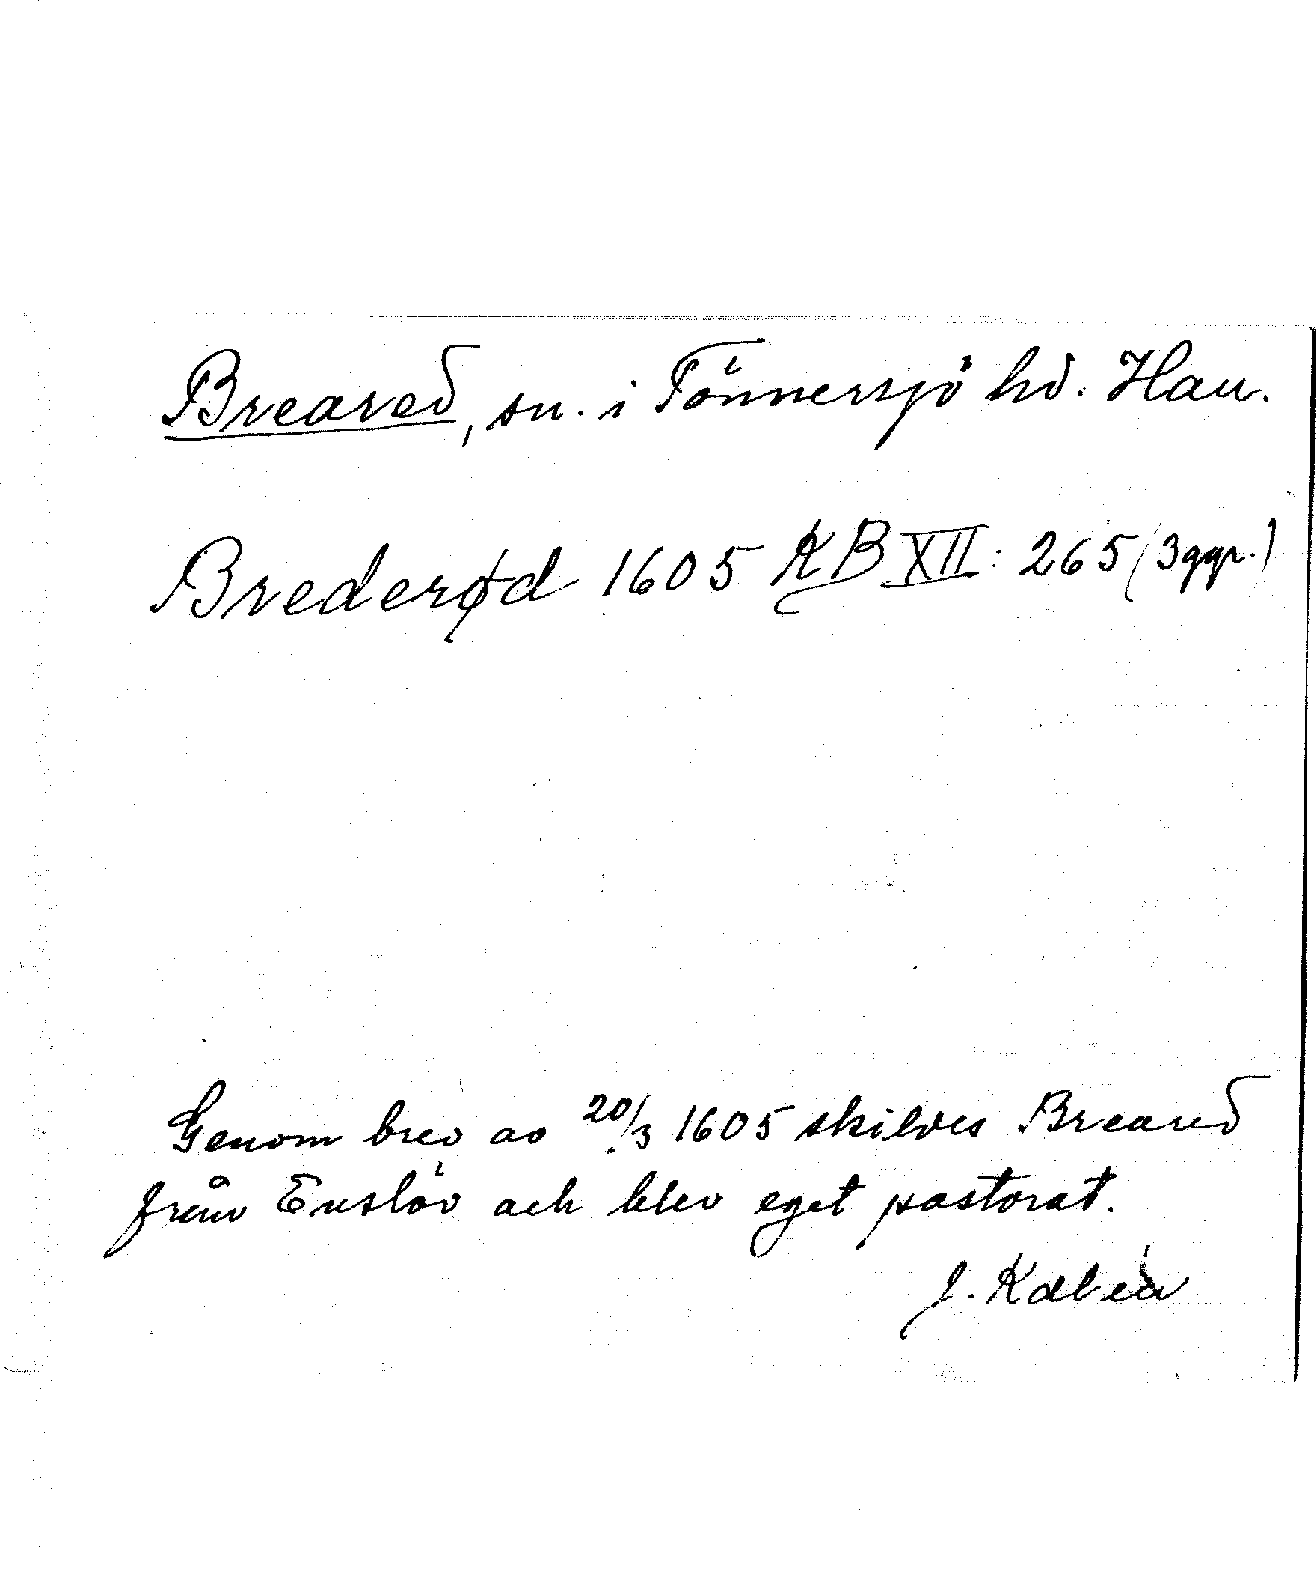 Breared, sn. i Tönnersjö hd. Hall.
Brederød 1605 KB XII: 265 (3 ggr.)
Genom brev av 20/3 1605 skildes Breared
från Enslöv och blev eget pastorat.
J. Kalén